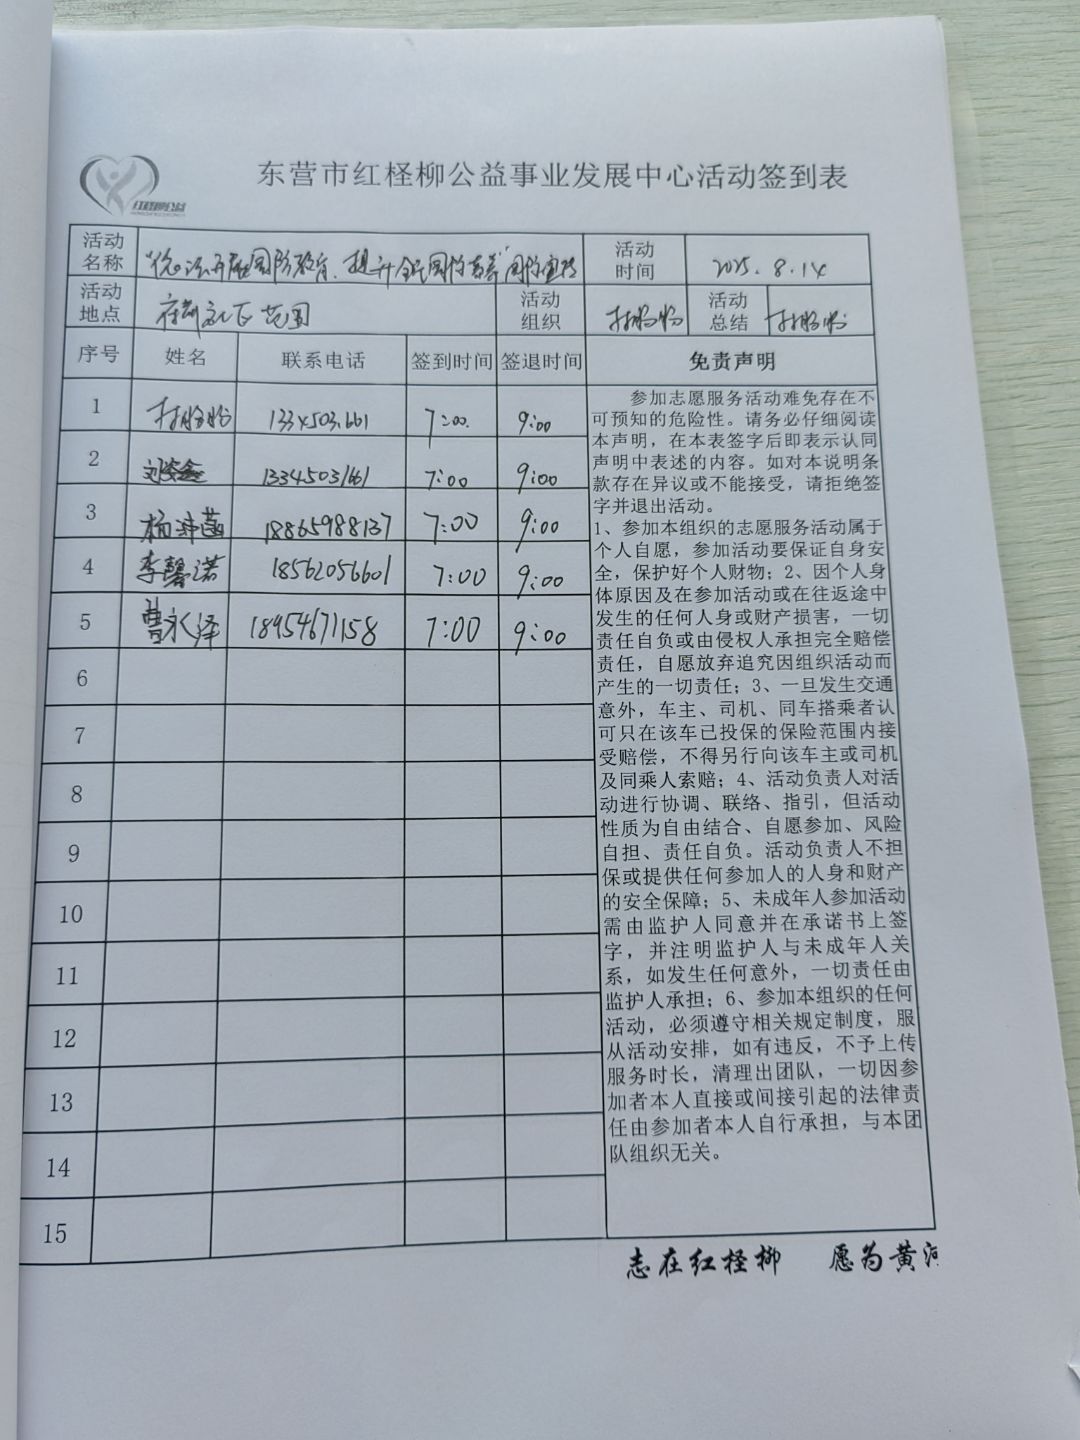 红柽柳公益
东营市红柽柳公益事业发展中心活动签到表
活动名称 开展国防教育、提升全民国防素养"国防宣传 活动时间 2025.8.14
活动地点 范围 活动组织 活动总结
序号 姓名 联系电话 签到时间 签退时间 免责声明
1 7:00. 9:00
2 刘姿鑫 13345031661 7:00 9:00
3 杨沛菡 18865988137 7:00 9:00
4 李馨诺 18562056601 7:00 9:00
5 曹永泽 18954671158 7:00 9:00
6
7
8
9
10
11
12
13
14
15
参加志愿服务活动难免存在不
可预知的危险性。请务必仔细阅读
本声明，在本表签字后即表示认同
声明中表述的内容。如对本说明条
款存在异议或不能接受，请拒绝签
字并退出活动。
1、参加本组织的志愿服务活动属于
个人自愿，参加活动要保证自身安
全，保护好个人财物；2、因个人身
体原因及在参加活动或在往返途中
发生的任何人身或财产损害，一切
责任自负或由侵权人承担完全赔偿
责任，自愿放弃追究因组织活动而
产生的一切责任；3、一旦发生交通
意外，车主、司机、同车搭乘者认
可只在该车已投保的保险范围内接
受赔偿，不得另行向该车主或司机
及同乘人索赔；4、活动负责人对活
动进行协调、联络、指引，但活动
性质为自由结合、自愿参加、风险
自担、责任自负。活动负责人不担
保或提供任何参加人的人身和财产
的安全保障；5、未成年人参加活动
需由监护人同意并在承诺书上签
字，并注明监护人与未成年人关
系，如发生任何意外，一切责任由
监护人承担；6、参加本组织的任何
活动，必须遵守相关规定制度，服
从活动安排，如有违反，不予上传
服务时长，清理出团队，一切因参
加者本人直接或间接引起的法律责
任由参加者本人自行承担，与本团
队组织无关。
志在红柽柳 愿为黄河